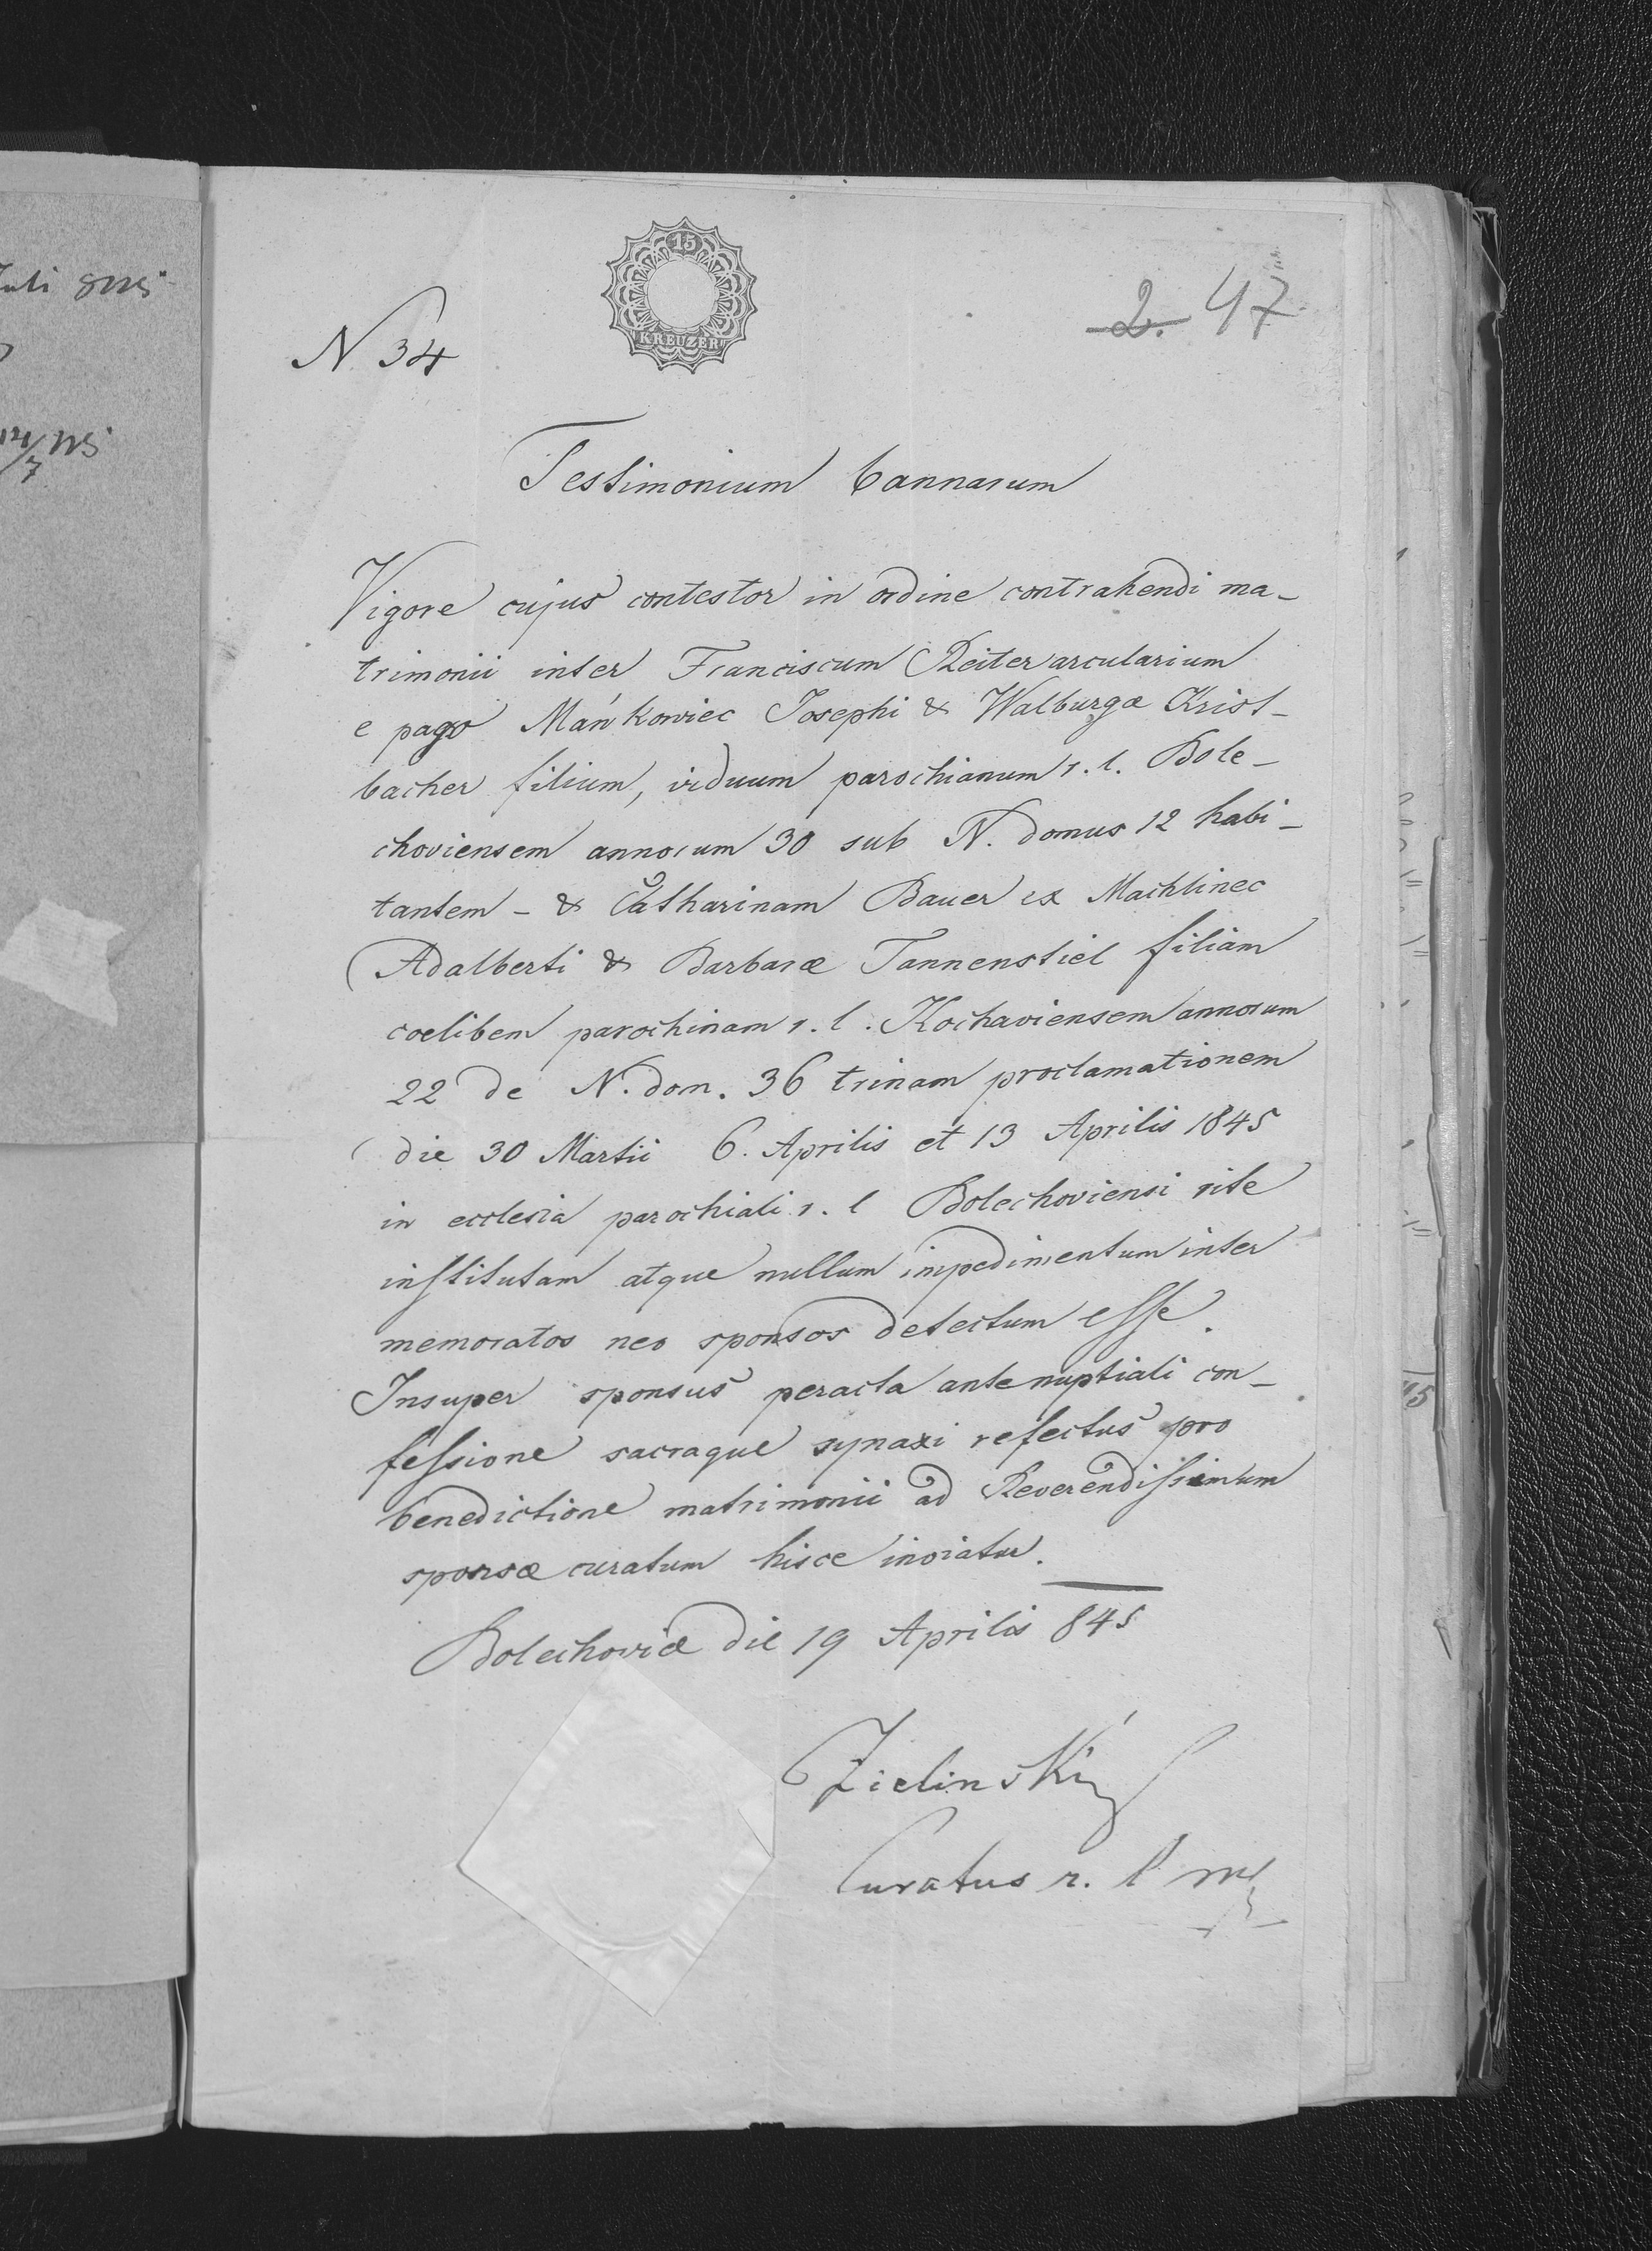 15
KREUZER
N 34
2. 47
Testimonium bannarum
Vigore cujus contestor in ordine contrahendi ma-
trimonii inter Franciscum Reiter arcularium
e pago Mańkowiec Josephi & Walburgæ Krist-
bacher filium, viduum parochianum r. l. Bole-
choviensem annorum 30 sub N. domus 12 habi-
tantem - & Catharinam Bauer ex Machlinec
Adalberti & Barbaræ Tannenstiel filiam
coelibem parochinam r. l. Kochaviensem annorum
22 de N. dom. 36 trinam proclamationem
die 30 Martii 6. Aprilis et 13 Aprilis 1845
in ecclesia parochiali r. l Bolechoviensi rite
institutam atque nullum impedimentum inter
memoratos neo sponsos detectum esse.
Insuper sponsus peracta antenuptiali con-
fessione sacraque synaxi refectus pro
benedictione matrimonii ad Reverendissimum
sponsæ curatum hisce inviatur.
Bolechoviæ die 19 Aprilis 845
Zielinski
Curatus r. l